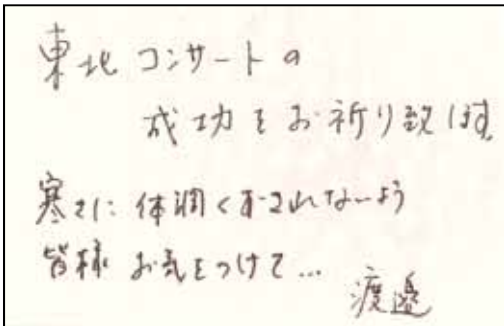 東北コンサートの
成功をお祈り致します。
寒さに体調くずされないよう
皆様 お気をつけて…
渡邉